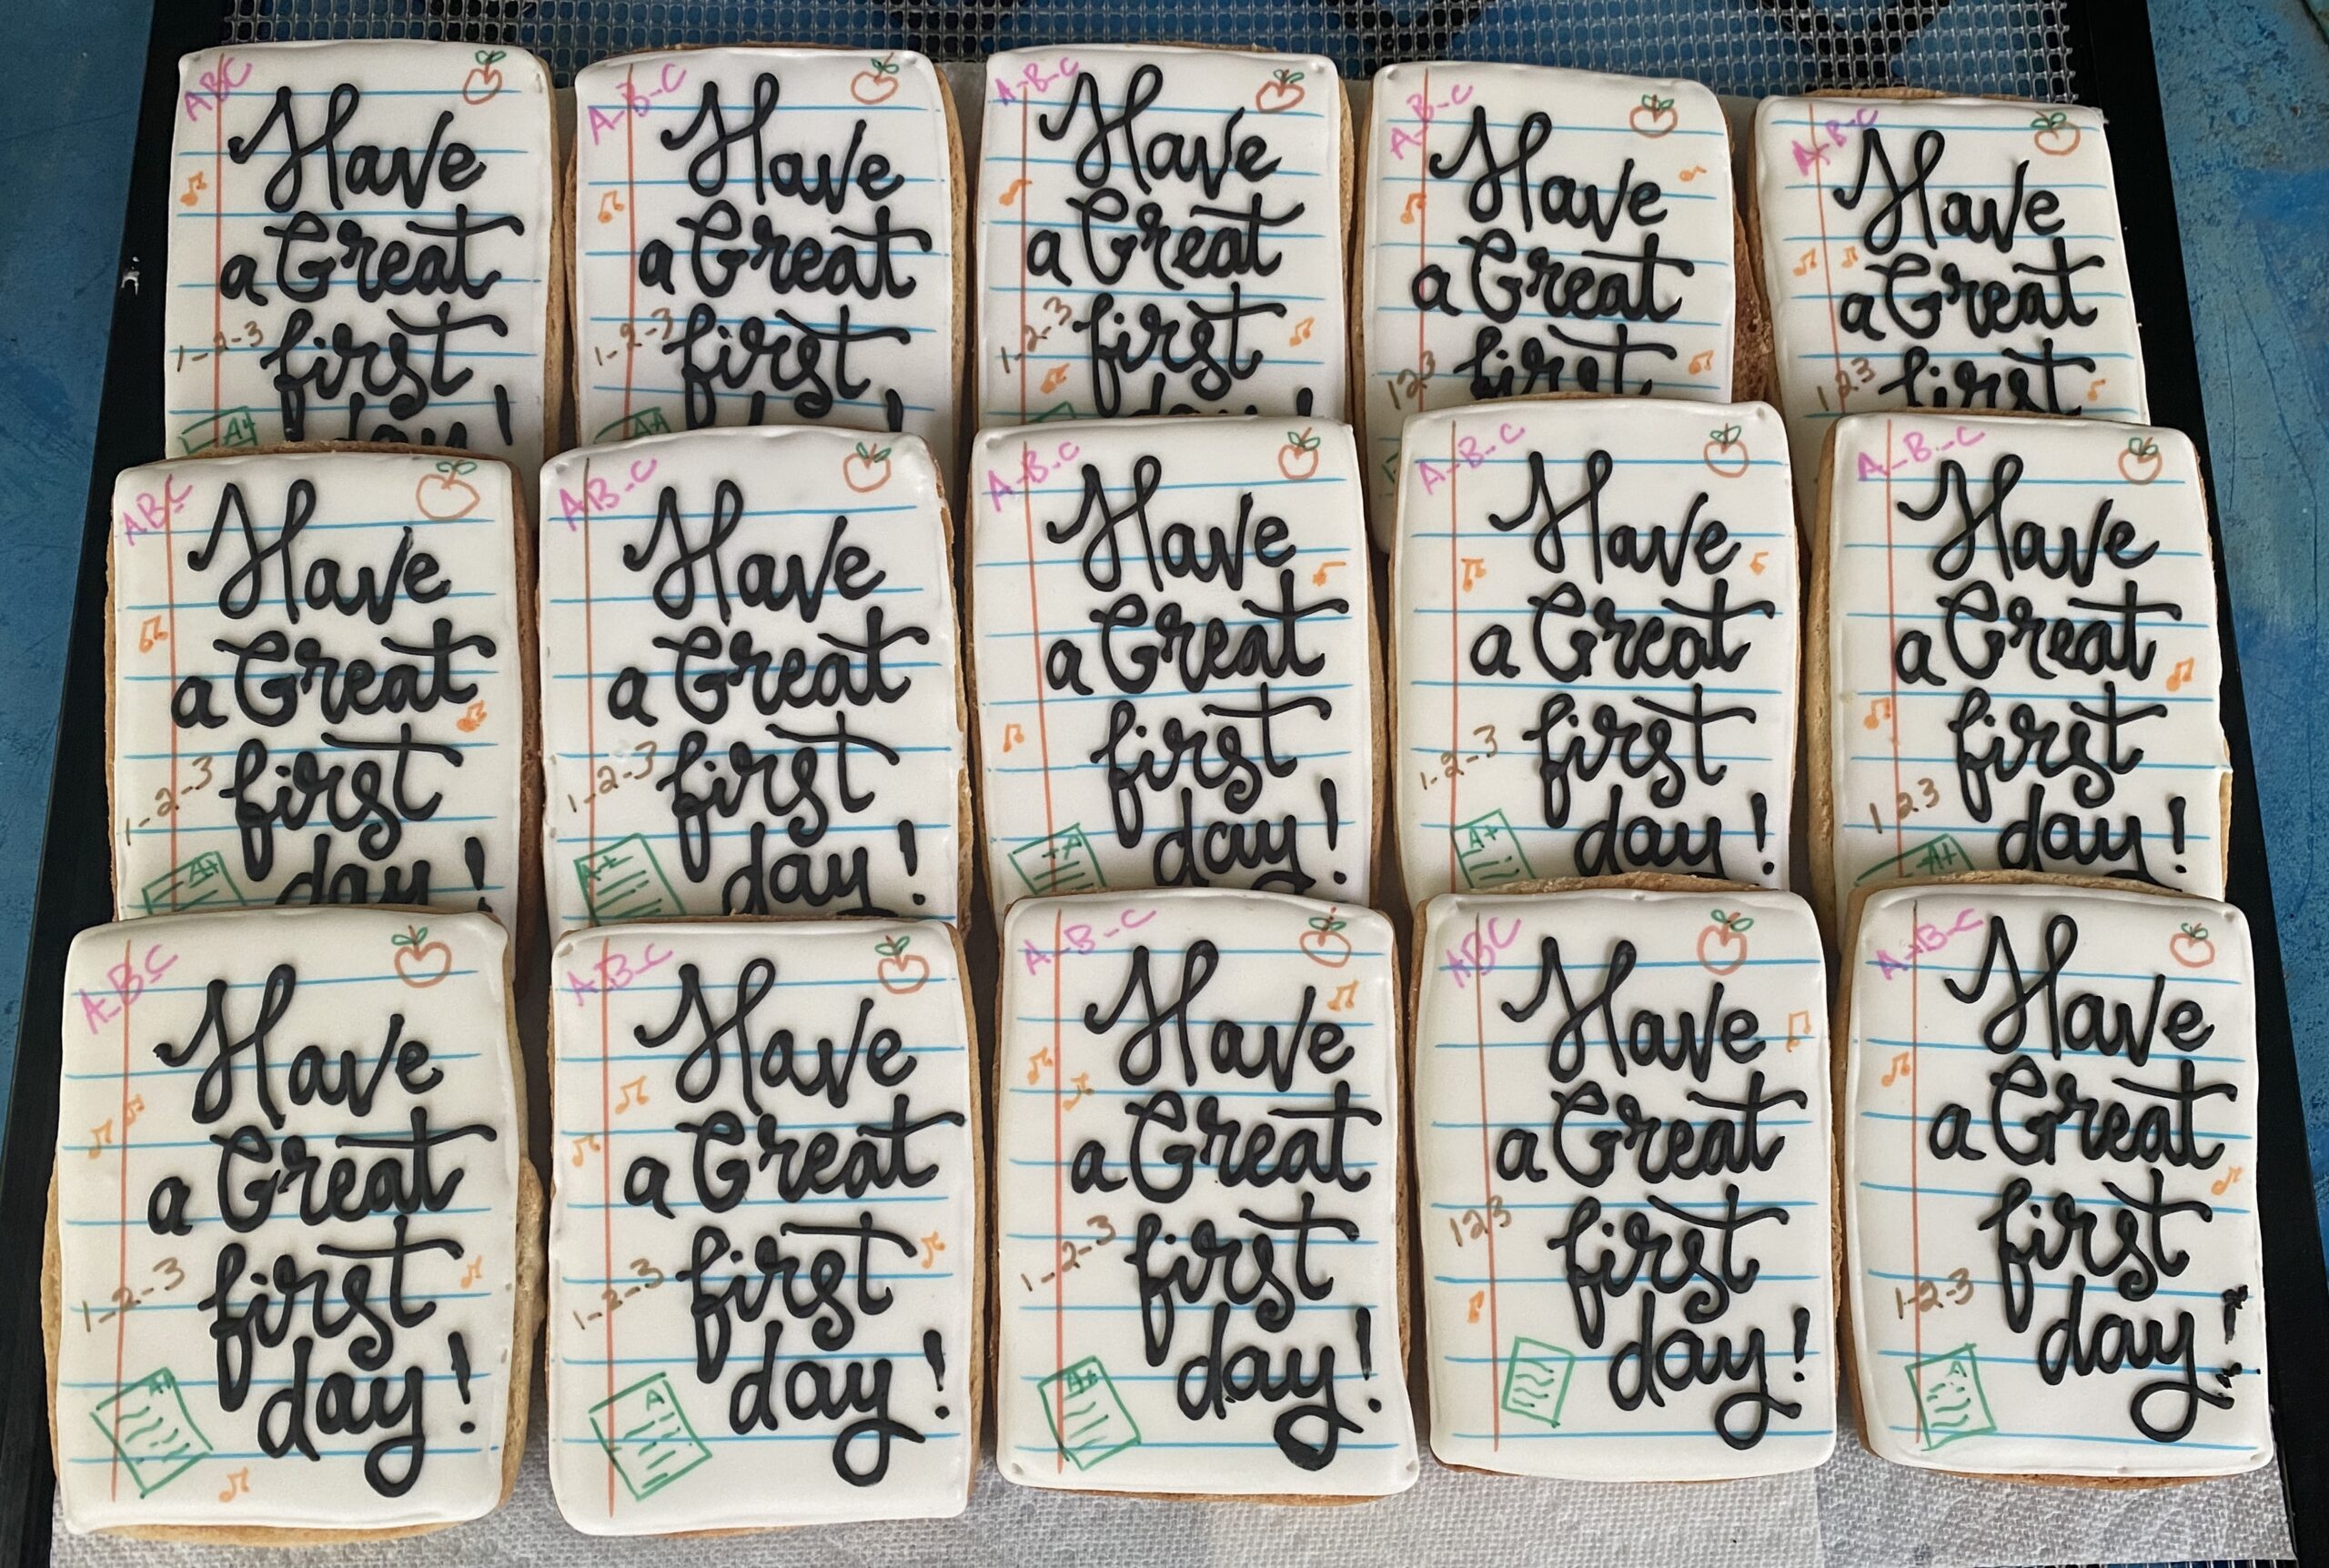 ABC
Have
a Great
1-2-3 first
A+ day!
A-B-C
Have
a Great
1-2-3 first
A+
A-B-C
Have
a Great
1-2-3 first
day!
A-B-C
Have
a Great
123 first
A-B-C
Have
a Great
123 first
ABC
Have
a Great
1-2-3 first
A+ day!
AB-C
Have
a Great
1-2-3 first
A+ day!
A-B-C
Have
a Great
first
+A day!
A-B-C
Have
a Great
1-2-3 first
A+ day!
A-B-C
Have
a Great
first
123
A+ day!
A-B-C
Have
a Great
1-2-3 first
A+ day!
A-B-C
Have
a Great
1-2-3 first
A day!
A-B-C
Have
a Great
1-2-3 first
A+ day!
ABC
Have
a Great
123 first
day!
A-B-C
Have
a Great
first
1-2-3
A day!